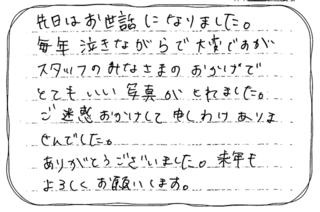 先日はお世話になりました。
毎年泣きながらで大変ですが
スタッフのみなさまのおかげで
とてもいい写真がとれました。
ご迷惑おかけして申しわけありま
せんでした。
ありがとうございました。来年も
よろしくお願いします。